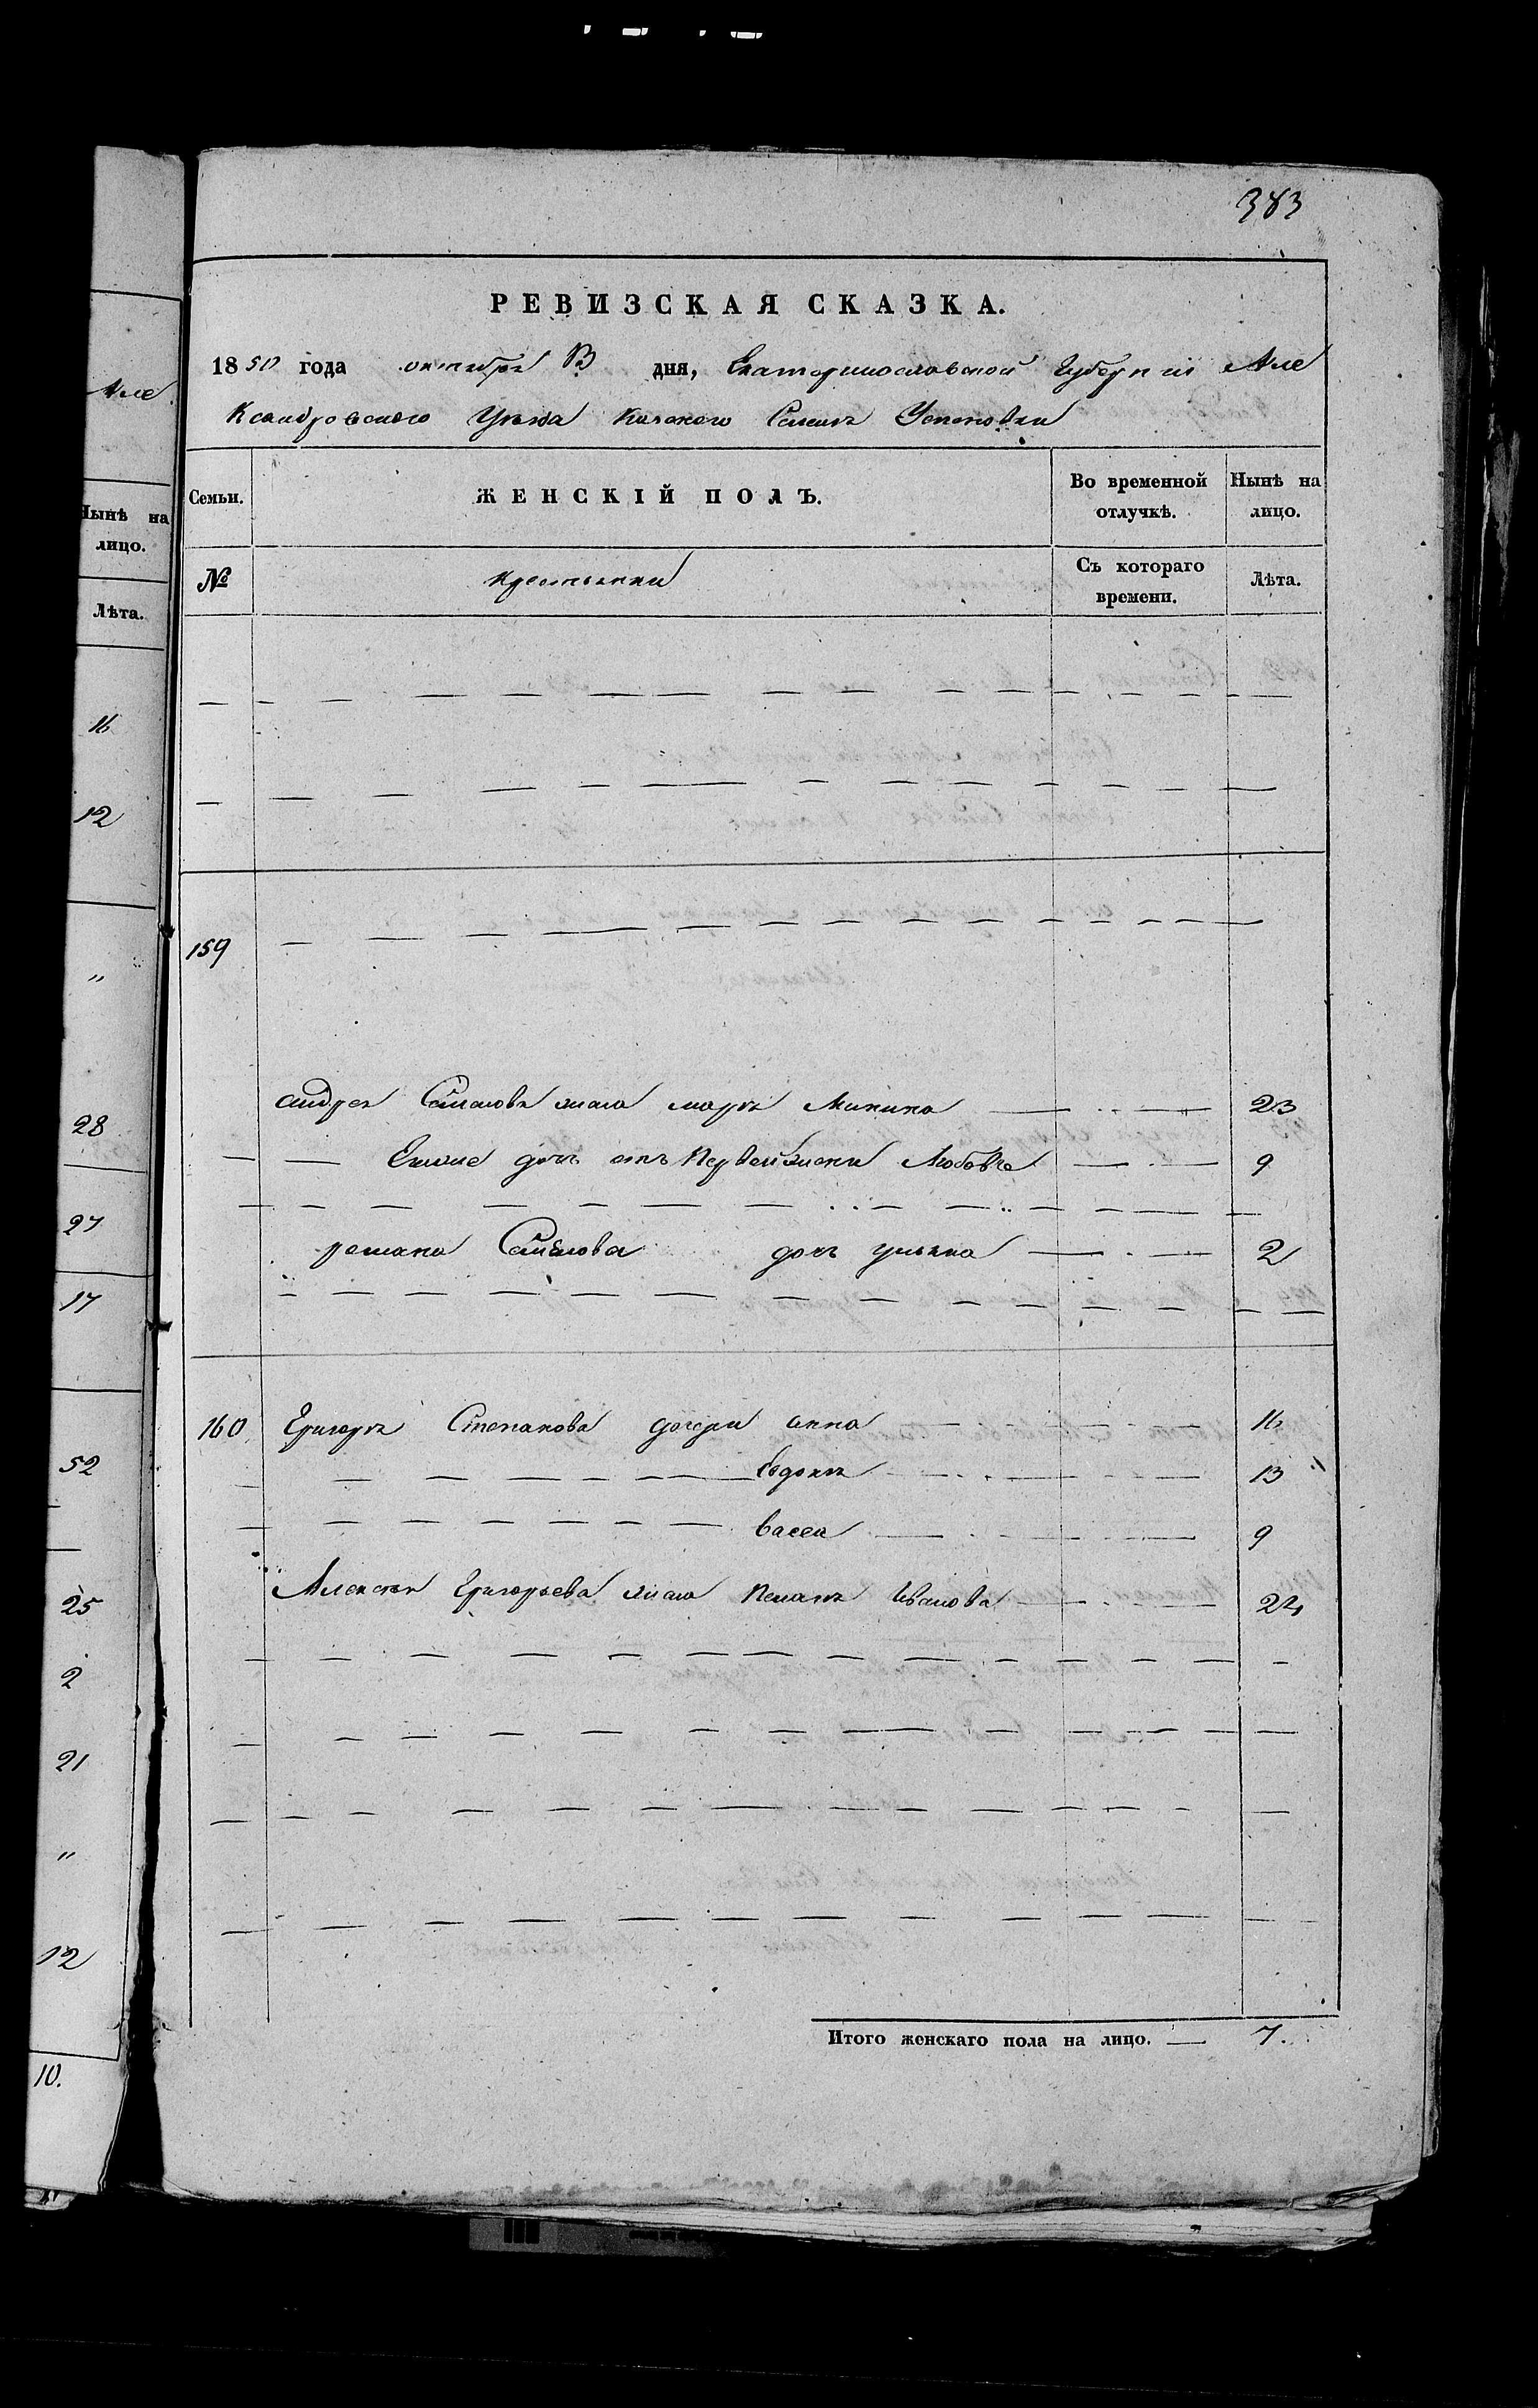 383
РЕВИЗСКАЯ СКАЗКА.
1850 года октября В дня, Екатеринославской Губерніи Але
ксандровского Уезда Села Успеновки
Семьи.
ЖЕНСКІЙ ПОЛЪ.
Во временной отлучкѣ.
Нынѣ на лицо.
№
крестьянки
Съ котораго времени.
Лѣта.
159
андрея Семенова жена марья Минина 23
Ево же дочь отъ Первой жены Любовь 9
романа Семенова дочь ульяна 2
160 Григорья Степанова дочери анна 16
Евдокія 13
васса 9
Алексея Григорьева жена Иванова 24
Итого женскаго пола на лицо. 7.
Але
Нынѣ на
лицо.
Лѣта.
16
12
"
28
27
17
52
25
2
21
"
12
10.